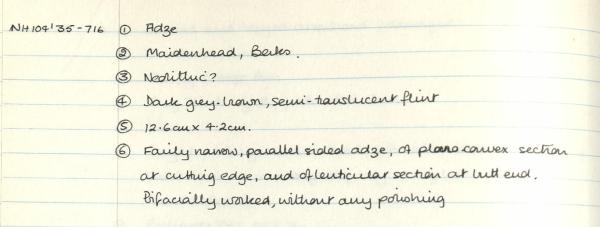 NH104'35-716 ① Adze
② Maidenhead, Berks.
③ Neolithic?
④ Dark grey-brown, semi-translucent flint
⑤ 12.6cm x 4.2cm.
⑥ Fairly narrow, parallel sided adze, of plano convex section
at cutting edge, and of lenticular section at butt end.
Bifacially worked, without any polishing